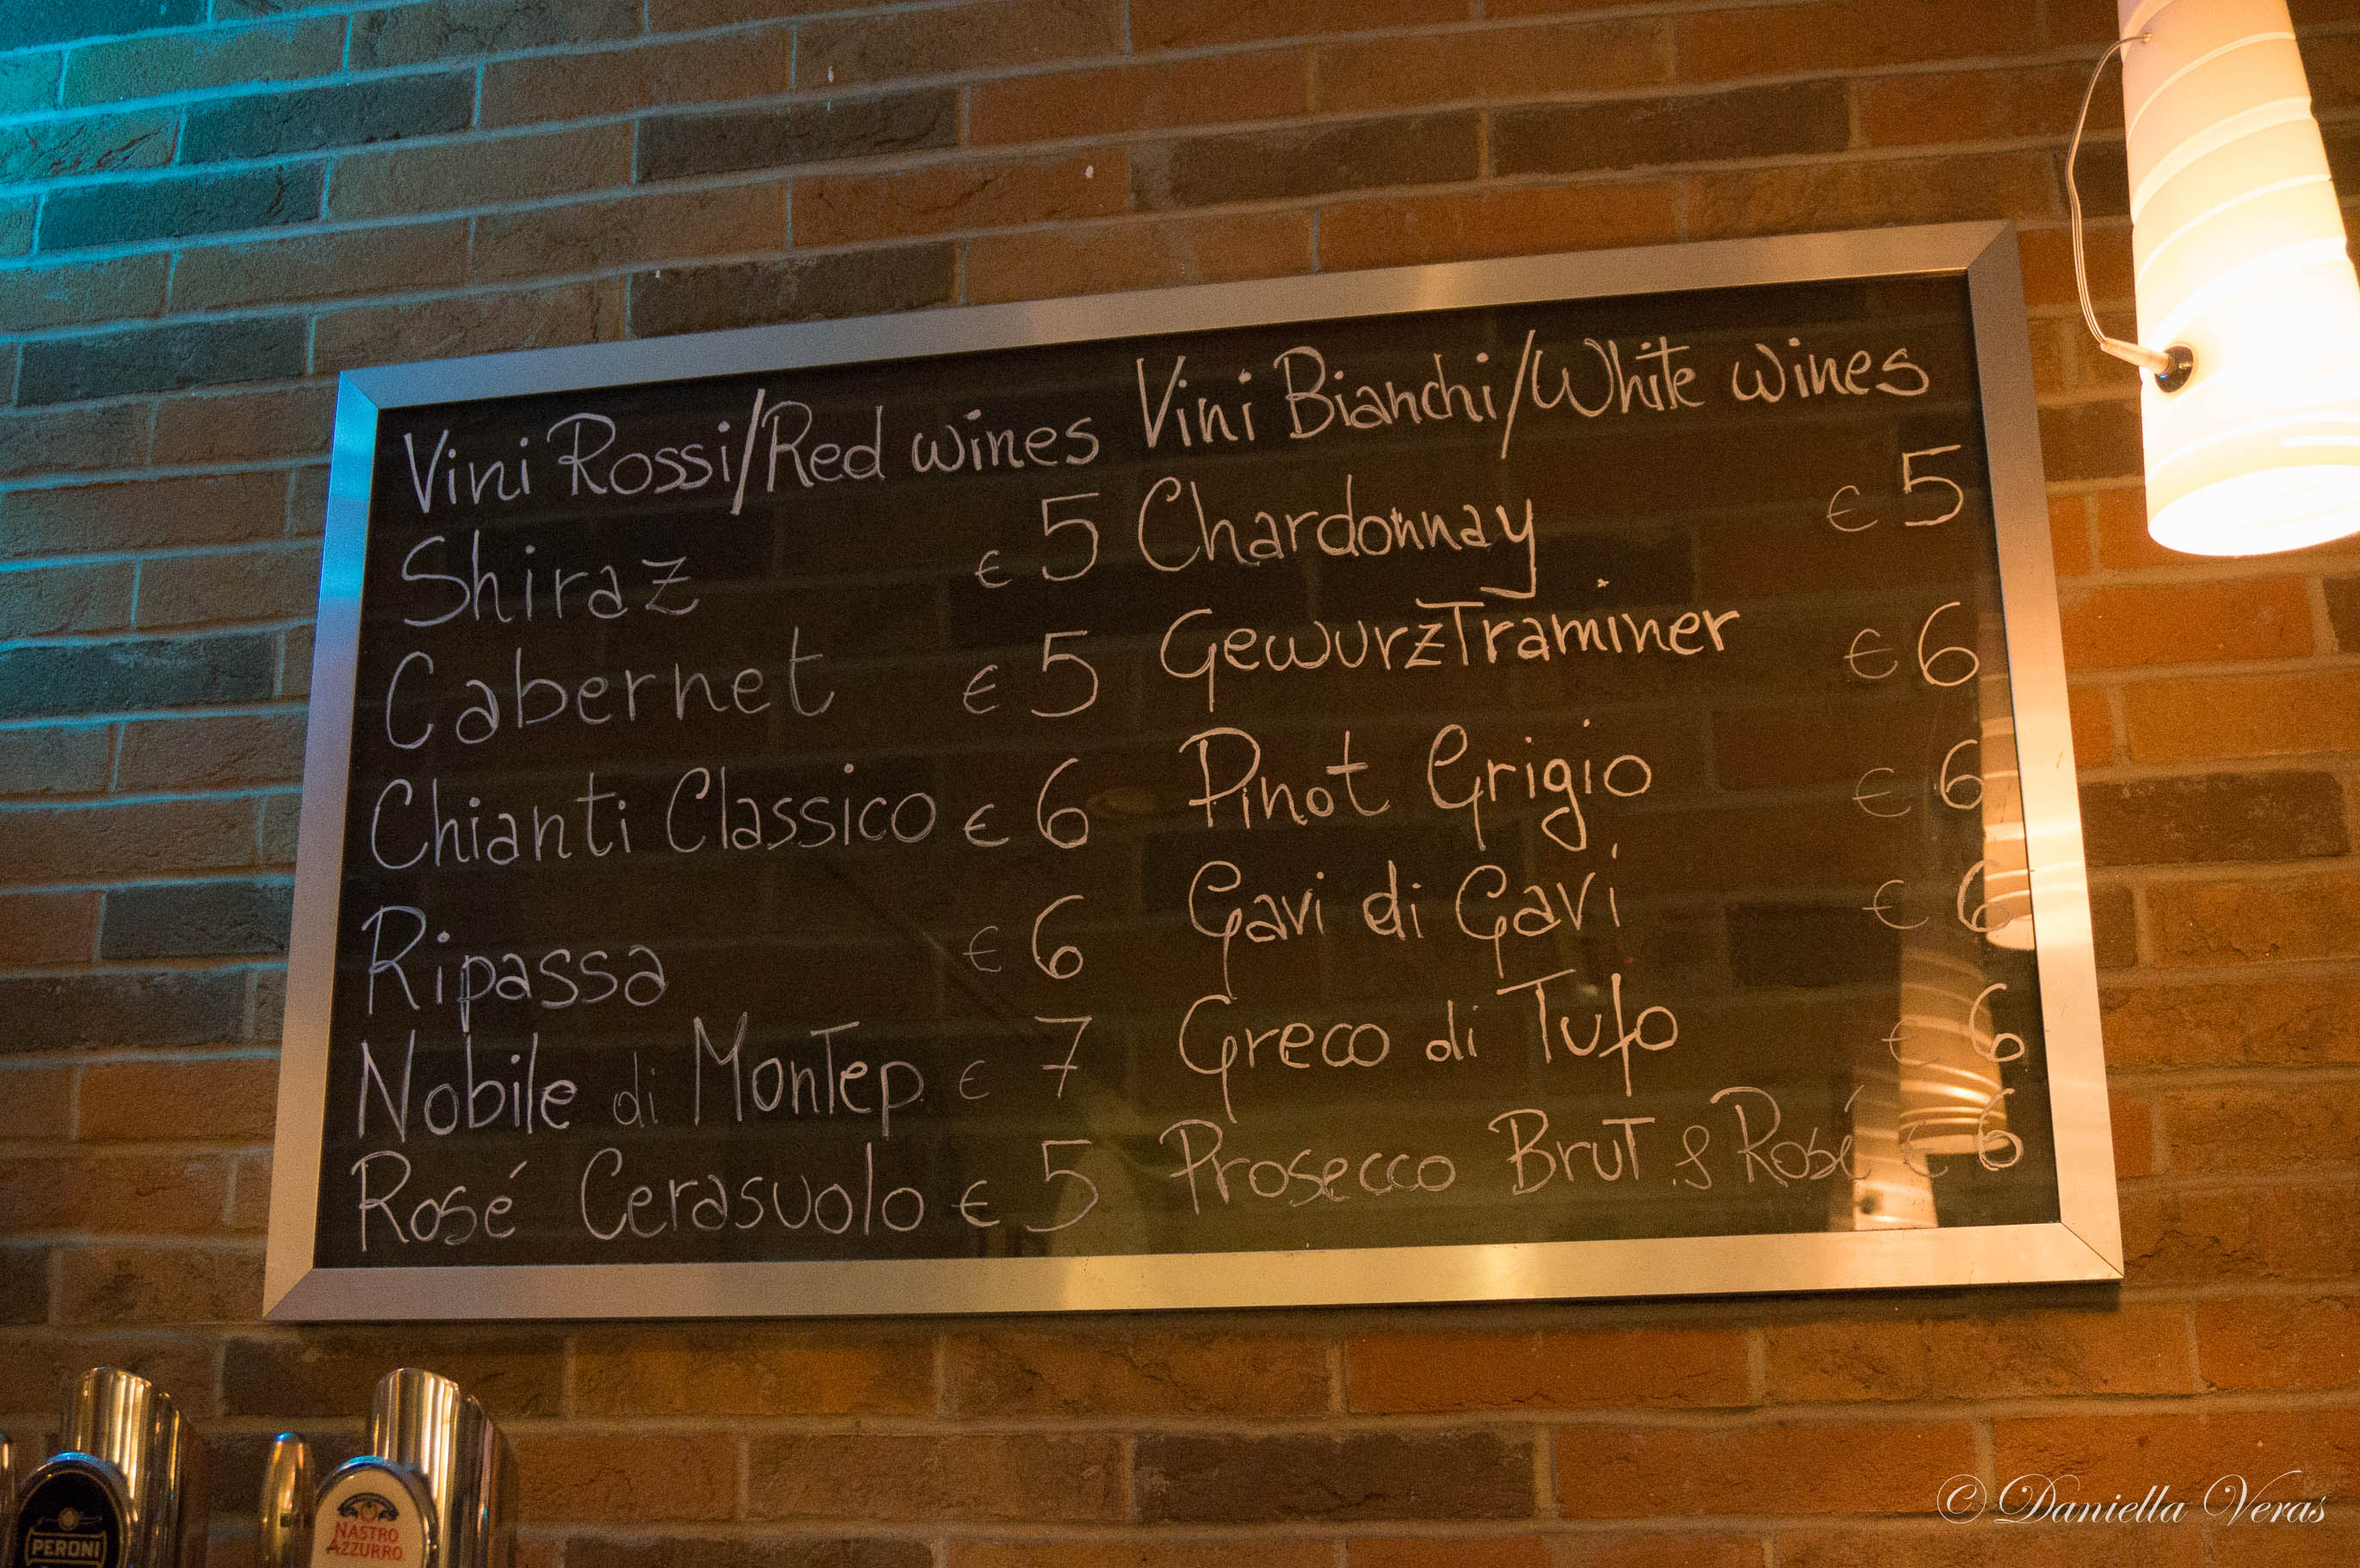 Vini Rossi/Red wines
Shiraz € 5
Cabernet € 5
Chianti Classico € 6
Ripassa € 6
Nobile di Montep. € 7
Rosé Cerasuolo € 5
Vini Bianchi/White wines
Chardonnay € 5
GewurzTraminer € 6
Pinot Grigio € 6
Gavi di Gavi € 6
Greco di Tufo € 6
Prosecco Brut & Rosé € 6
PERONI
NASTRO
AZZURRO
© Daniella Veras